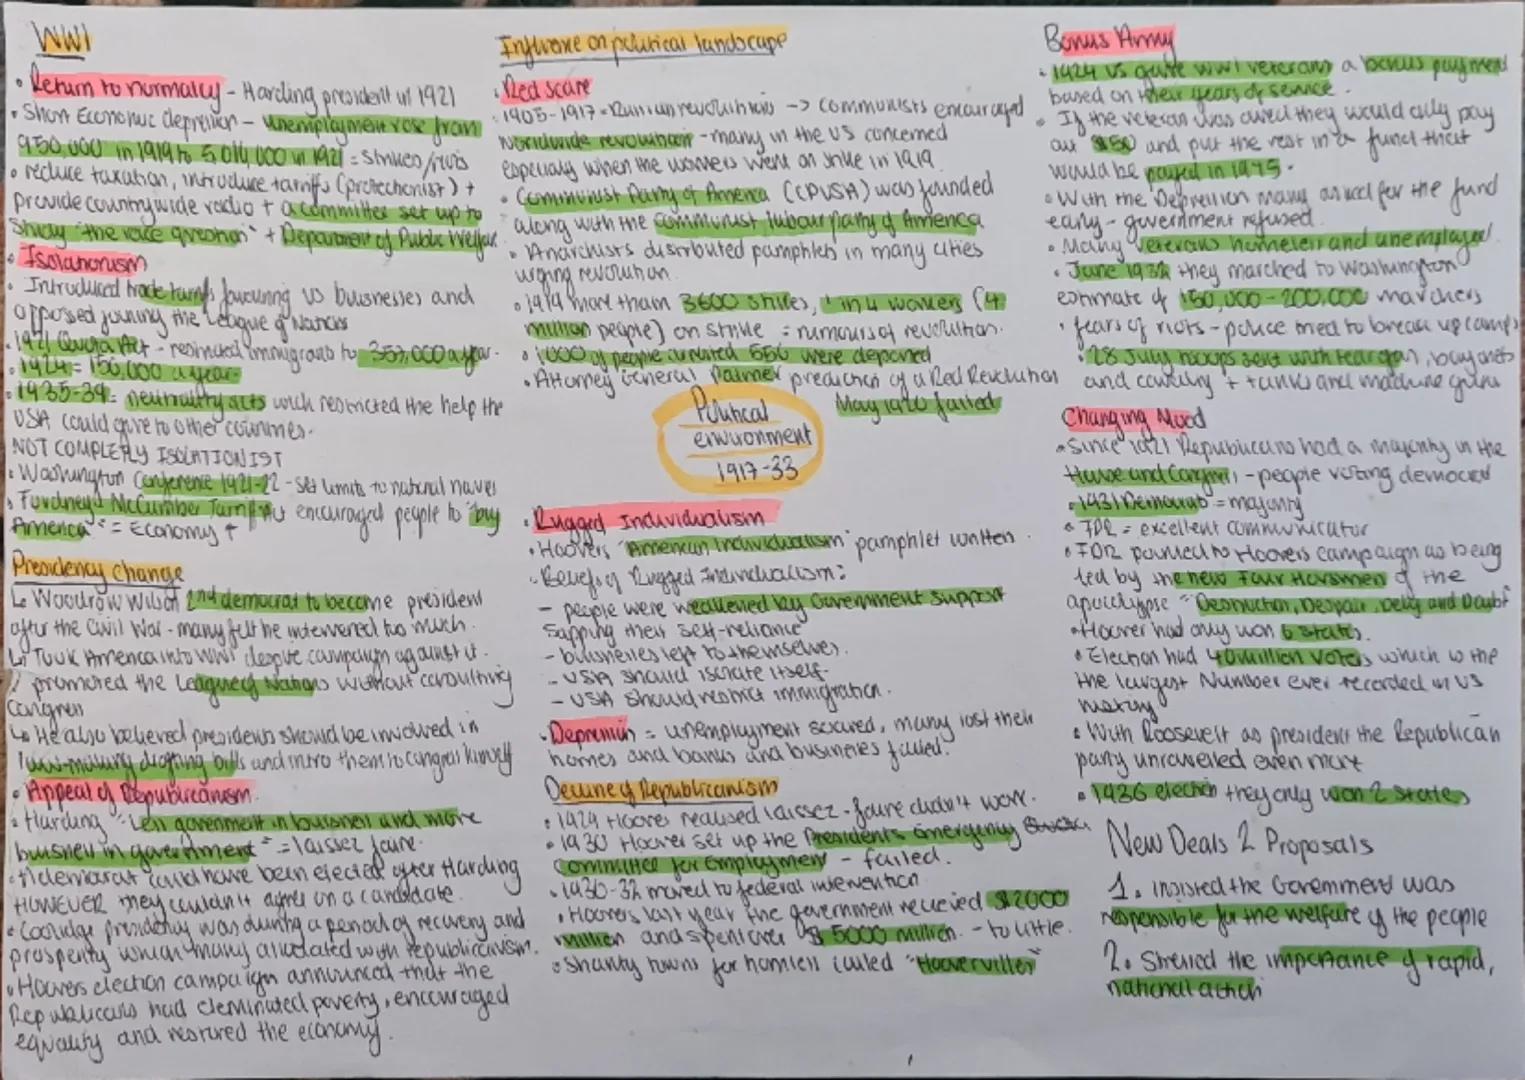 WW1
• Return to normalcy - Harding president in 1921
• Short Economic depression - unemployment rose from
950,000 in 1919 to 5,014,000 in 1921 = strikes/riots
• reduce taxation, introduce tariffs (protectionist) +
provide countrywide radio + a committee set up to
study "the race question" + Department of Public Welfare
• Isolationism
• Introduced trade tariffs favouring US businesses and
opposed joining the League of Nations
• 1921 Quota Act - restricted immigrants to 357,000 a year.
• 1924 = 150,000 a year.
• 1935-39 = neutrality acts which restricted the help the
USA could give to other countries.
NOT COMPLETLY ISOLATIONIST
• Washington Conference 1921-22 - set limits to national navies
• Fordney McCumber Tariff Act encouraged people to "buy
America" = Economy ↑
Presidency change
↳ Woodrow Wilson 2nd democrat to become president
after the Civil War - many felt he intervened too much.
↳ Took America into WW1 despite campaign against it.
promoted the League of Nations without consulting
Congress
↳ He also believed presidents should be involved in
law-making drafting bills and intro them to congress himself
• Appeal of Republicanism.
• Harding "Less government in business and more
business in government" = laissez faire.
• A democrat could have been elected after Harding
HOWEVER they couldn't agree on a candidate.
• Coolidge presidency was during a period of recovery and
prosperity which many associated with republicanism.
• Hoovers election campaign announced that the
Republicans had eliminated poverty, encouraged
equality and restored the economy.
Influence on political landscape
• Red scare
• 1905-1917 = Russian revolutions -> communists encouraged
worldwide revolution - many in the US concerned
especially when the workers went on strike in 1919.
• Communist Party of America (CPUSA) was founded
along with the communist labour party of America
• Anarchists distributed pamphlets in many cities
urging revolution.
• 1919 more than 3600 strikes, 1 in 4 workers (4
million people) on strike = rumours of revolution.
• 1000 of people arrested 556 were deported
• Attorney General Palmer prediction of a Red Revolution
May 1920 failed
Political
environment
1917-33
• Rugged Individualism
• Hoovers "American Individualism" pamphlet written.
• Beliefs of Rugged Individualism:
- people were weakened by Government support
sapping their self-reliance
- businesses left to themselves.
- USA should isolate itself.
- USA should restrict immigration.
• Depression = unemployment soared, many lost their
homes and banks and businesses failed.
Decline of Republicanism
• 1929 Hoover realised laissez-faire didn't work.
• 1930 Hoover set up the President's Emergency
Committee for Employment - failed.
• 1930-32 moved to federal intervention.
• Hoovers last year the government recieved $2000
million and spent over $5000 million. - to little.
• Shanty towns for homless called "Hoovervilles"
Bonus Army
• 1924 US gave WW1 veterans a bonus payment
based on their years of service.
• If the veteran was owed they would only pay
out $50 and put the rest in a fund that
would be payed in 1945.
• With the Depression many asked for the fund
early - government refused.
• Many veterans homeless and unemployed.
• June 1932 they marched to Washington
estimate of 150,000-200,000 marchers
• fears of riots - police tried to break up camps
• 28 July troops sent with tear gas, bayonets
and cavalry + tanks and machine guns
Changing Mood
• Since 1921 Republicans had a majority in the
House and Congress - people voting democrat
• 1931 Democrats = majority
• FDR = excellent communicator
• FDR pointed to Hoovers campaign as being
led by the new Four Horsmen of the
apocalypse "Destruction, Despair, Delay and Doubt"
• Hoover had only won 6 states.
• Election had 40 million voters which is the
the largest Number ever recorded in US
history
• With Roosevelt as president the Republican
party unravelled even more
• 1936 election they only won 2 states
New Deals 2 Proposals
1. insisted the Government was
responsible for the welfare of the people
2. Stressed the importance of rapid,
national action